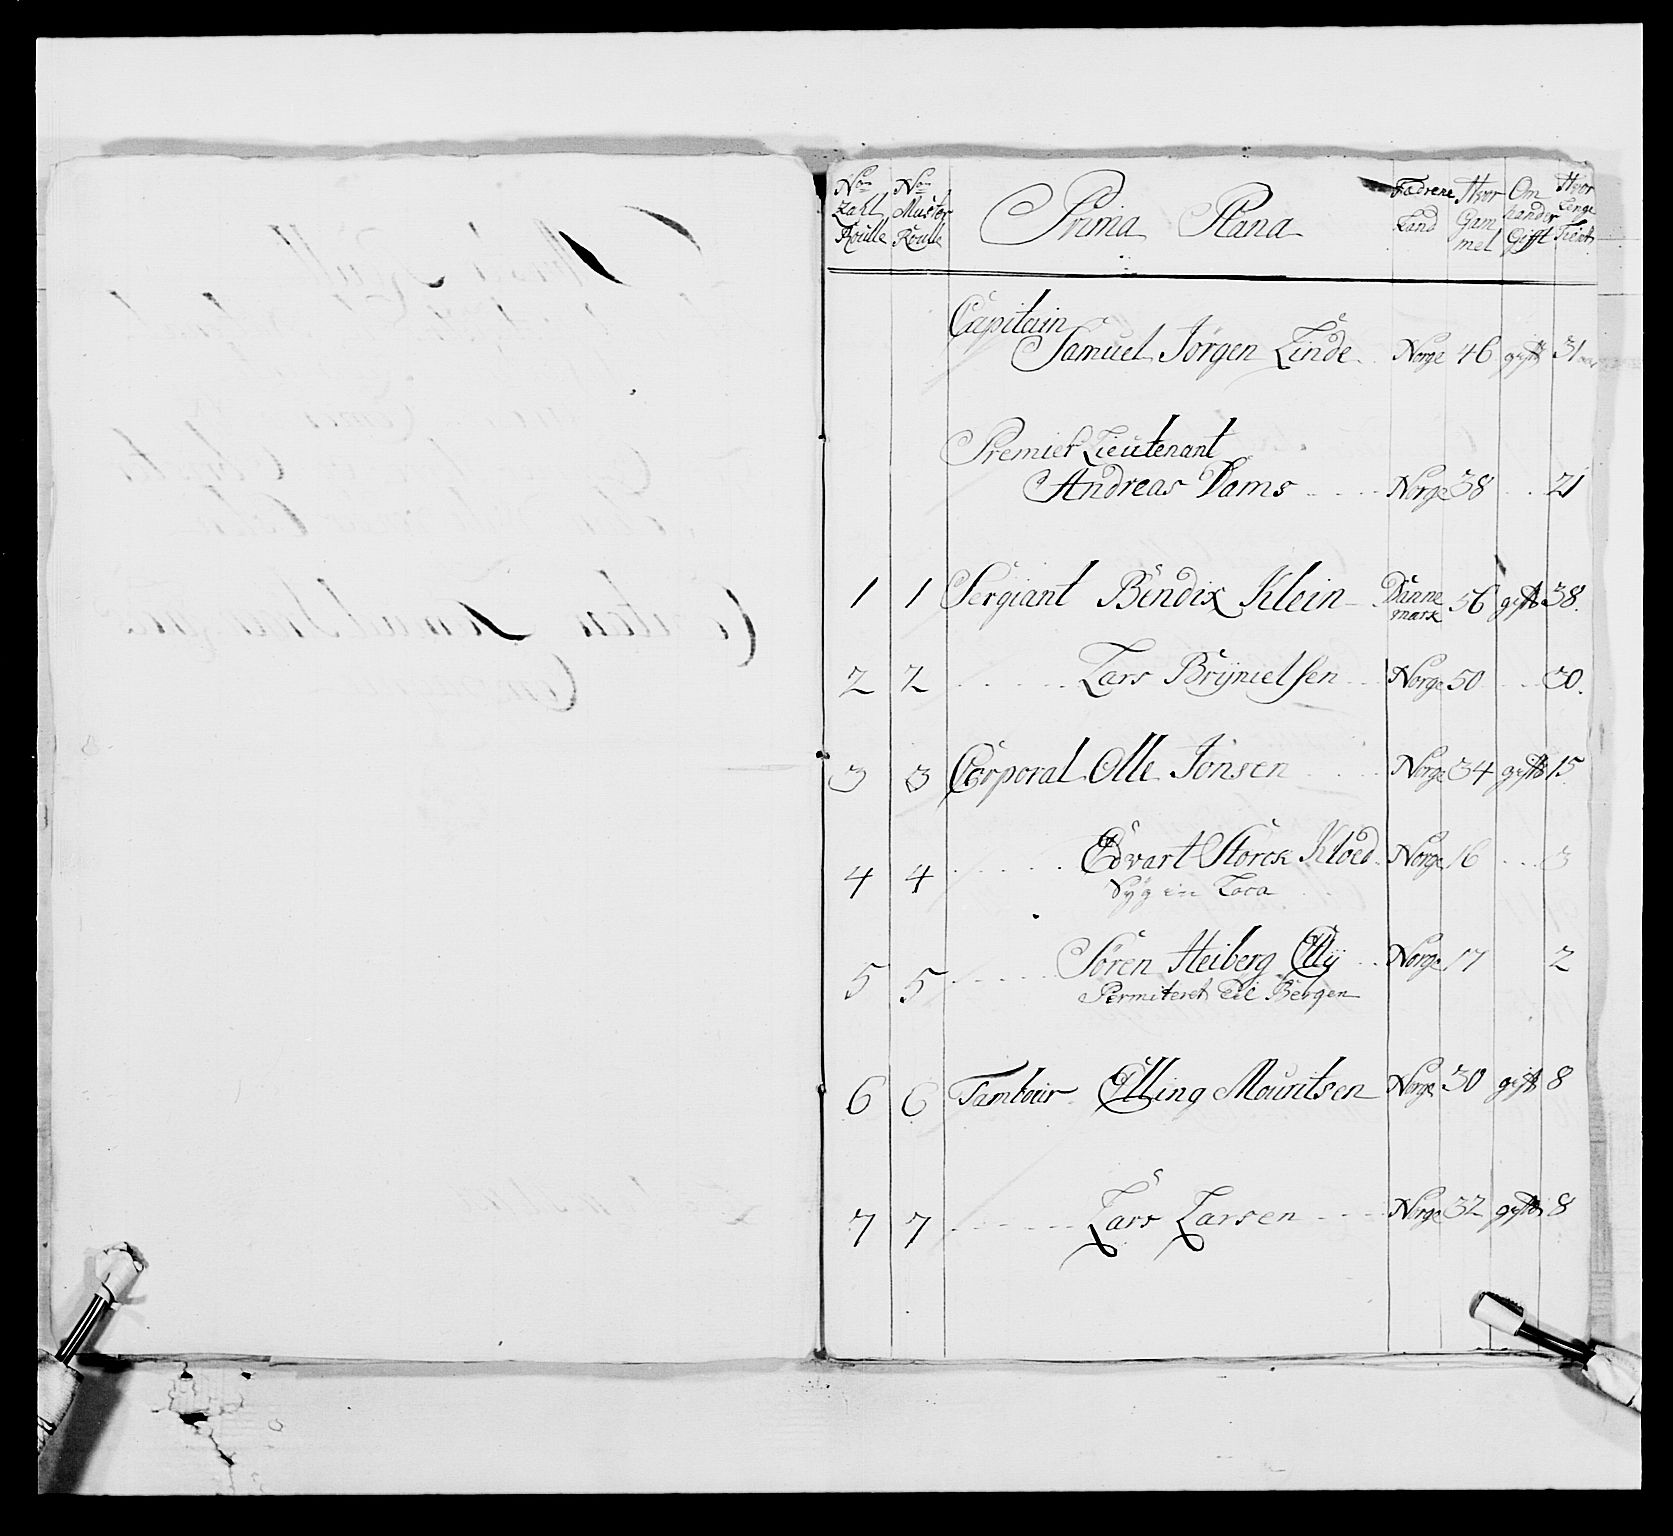 No Zahl Roulle | No Muster Roulle | Prima Plana | Fædrene Land | Hvor Gammel | Om hand er Gifft | Hvor Lenge Tient
Capitain
Samuel Jørgen Linde Norge 46 gifft 31 aar
Premier Lieutenant
Andreas Dams Norge 38 21
1 1 Sergiant Bendix Klein Dannemark 56 gifft 38.
2 2 Lars Brynielsen Norge 50 30.
3 3 Corporal Olle Jonsen Norge 34 gifft 15
4 4 Edvart Storck Kloed Norge 16 3
Syg in Loca
5 5 Søren Heiberg Elly Norge 17 2
Permiteret til Bergen
6 6 Tambour Elling Mouritsen Norge 30 gifft 8
7 7 Lars Larsen Norge 32 gifft 8